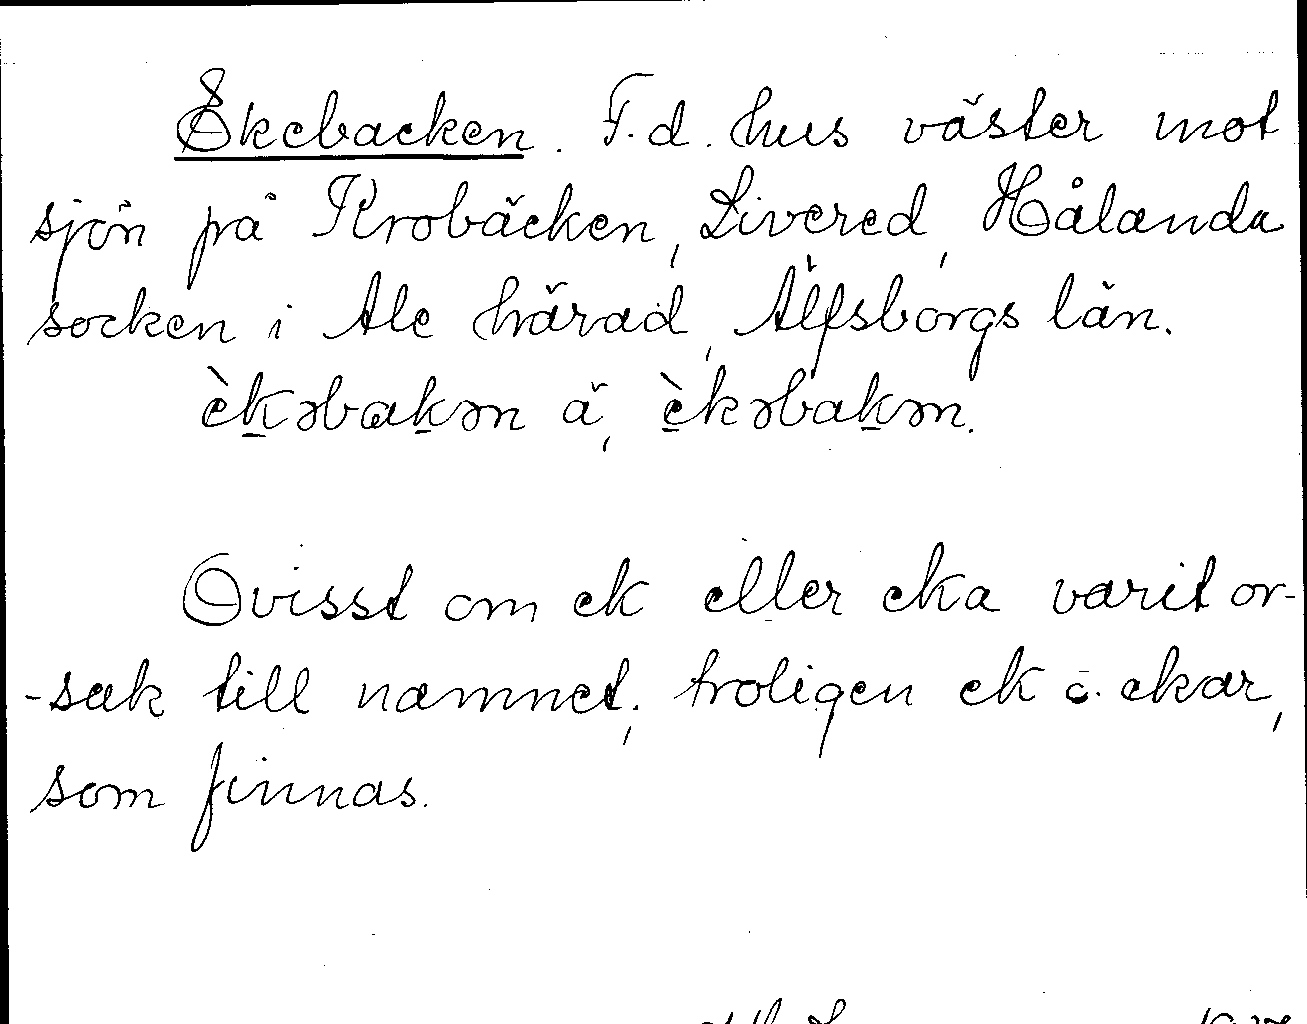 Ekebacken. F.d. hus väster mot
sjön på Krobäcken, Livered, Hålanda
socken i Ale härad, Älfsborgs län.
èkəbakən ä, èkəbakən.
Ovisst om ek eller eka varit or-
-sak till namnet; troligen ek o. ekar,
som finnas.